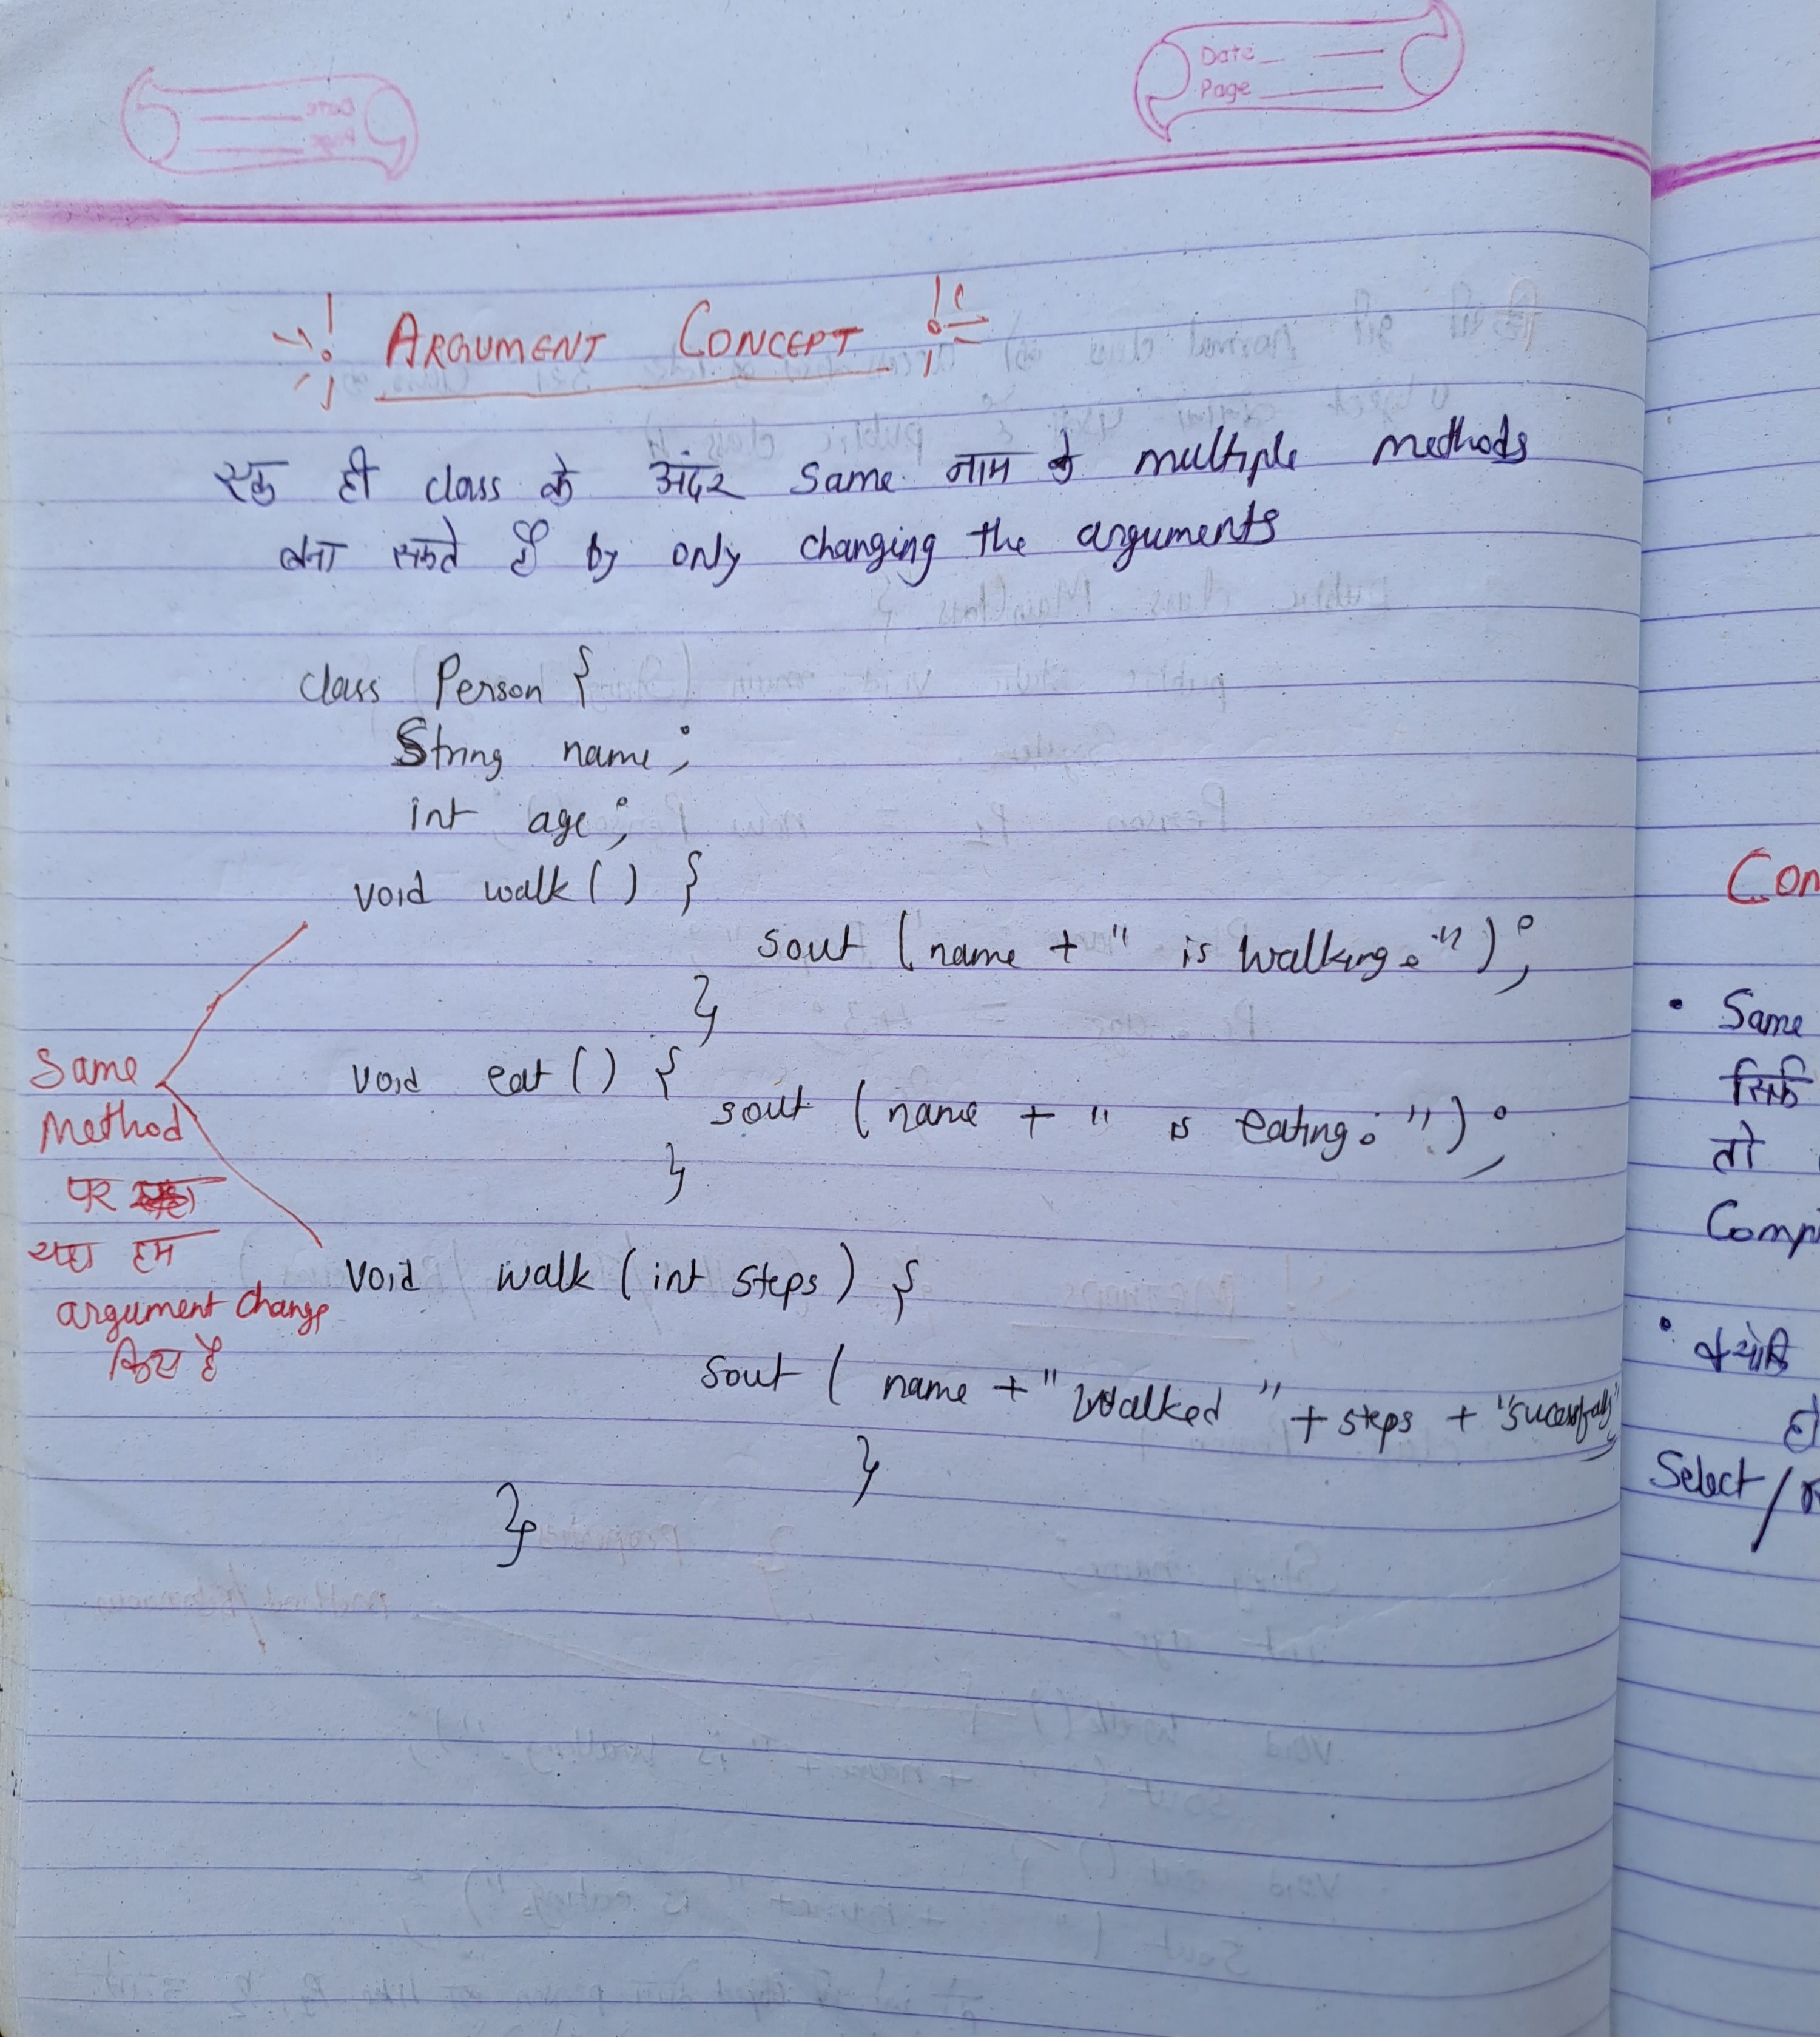 Date
Page
ARGUMENT CONCEPT
एक ही class के अंदर same नाम के multiple methods
बना सकते हैं by only changing the arguments
class Person {
String name;
int age;
void walk() {
sout (name + " is walking.");
}
void eat() {
sout (name + " is eating.");
}
void walk (int steps) {
sout ( name + "Walked " + steps + "sucessfully"
}
}
Same
Method
पर
यहा हम
argument change
किए है
Con
• Same
सिर्फ
तो
Compi
• क्योकि
हो
Select /